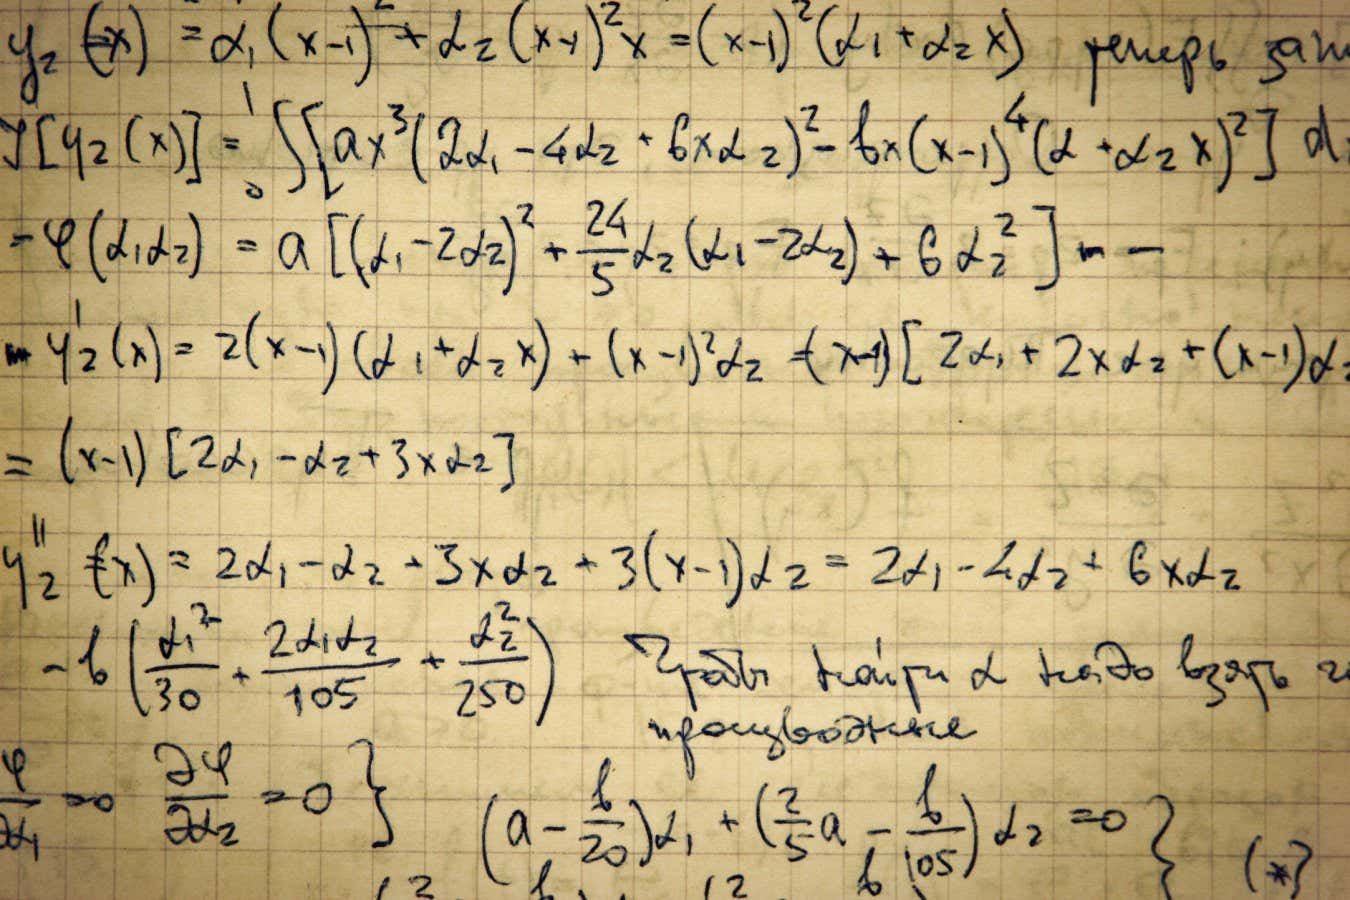 y₂(x) = α₁(x-1)² + α₂(x-1)²x = (x-1)²(α₁+α₂x) теперь
J[y₂(x)] = ∫₀¹[ax³(2α₁-4α₂+6xα₂)² - bx(x-1)⁴(α+α₂x)²]
= φ(α₁α₂) = a[(α₁-2α₂)² + 24/5 α₂(α₁-2α₂) + 6α₂²] - -
y₂'(x) = 2(x-1)(α₁+α₂x) + (x-1)²α₂ = (x-1)[2α₁+2xα₂+(x-1)α₂
= (x-1)[2α₁-α₂+3xα₂]
y₂''(x) = 2α₁-α₂+3xα₂+3(x-1)α₂ = 2α₁-4α₂+6xα₂
-b(α₁²/30 + 2α₁α₂/105 + α₂²/250) Чтобы найти α надо взять
производные
∂φ/∂α₁ = 0 ∂φ/∂α₂ = 0 }
(a - b/20)α₁ + (2/5 a - b/105)α₂ = 0 } (*)